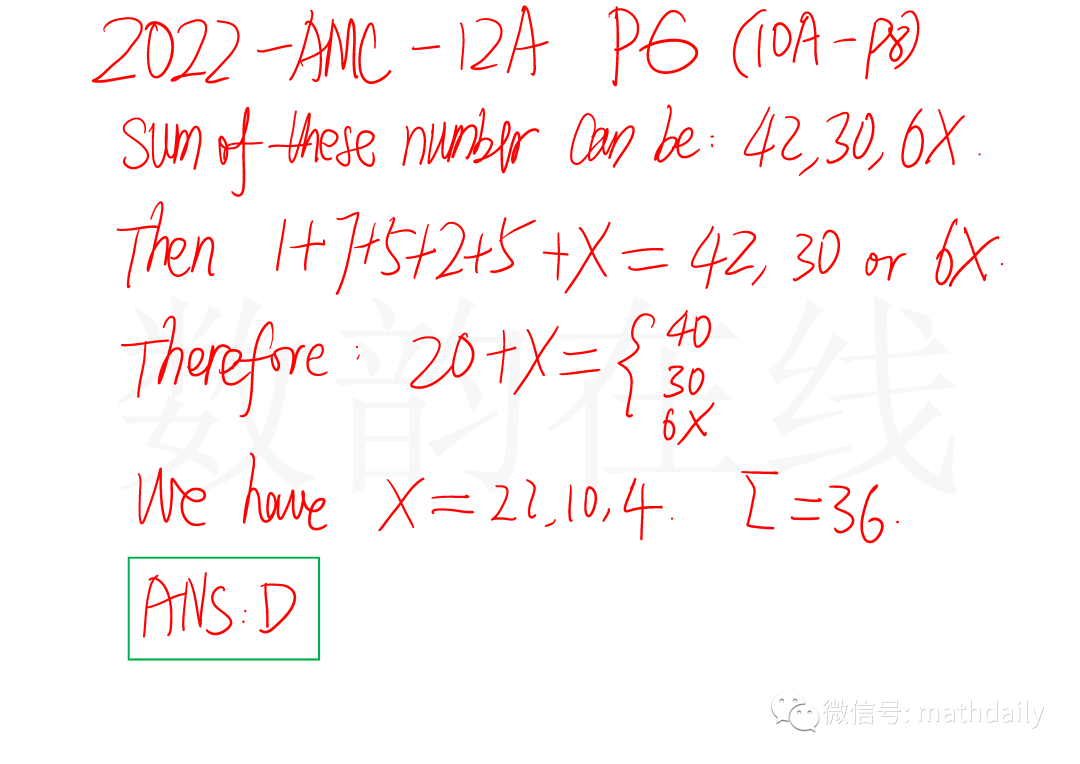 2022-AMC-12A P6 (10A-P8)
Sum of these number can be: 42, 30, 6X.
Then 1+7+5+2+5+X = 42, 30 or 6X.
Therefore: 20+X = { 40
30
6X
We have X = 22, 10, 4. Σ = 36.
ANS: D
数韵在线
微信号: mathdaily